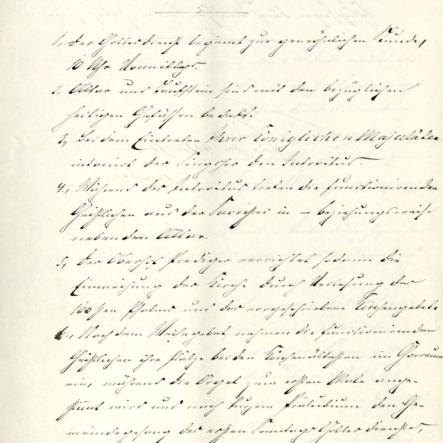 1, Der Gottesdienst beginnt zur gewöhnlichen Stunde,
10 Uhr Vormittags.
2, Altar und Taufstein sind mit den bezüglichen
heiligen Gefäßen bedeckt.
3, Bei dem Eintreten Ihrer Königlichen Majestäten
intonirt der Singchor den Introitus.
4, Während des Introitus treten die functionirenden
Geistlichen aus der Sacristei in – beziehungsweise
neben den Altar.
5, Der Oberhofprediger verrichtet sodann die
Einweihung der Kirche durch Verlesung des
100sten Psalms und des vorgeschriebenen Kirchengebets.
6, Nach dem Weihegebet nehmen die functionirenden
Geistlichen ihre Plätze bei den im Chorraum
ein, während die Orgel zum ersten Male ange-
stimmt wird und nach kurzem Präludium den Ge-
meindegesang des ersten Sonntags Gottesdienstes,